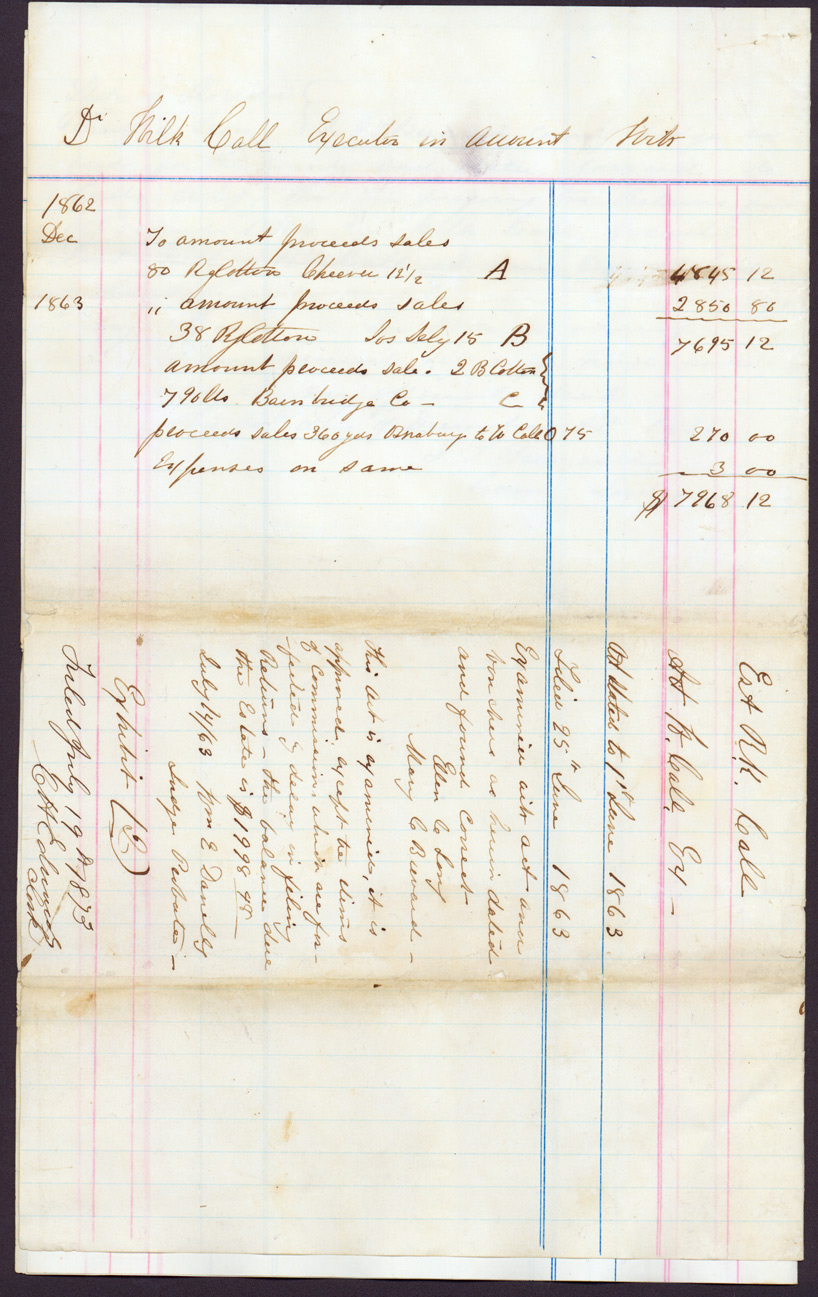 Dr Wilk Call Executor in account With
1862
Dec To amount proceeds sales
80 B Cotton Cheever 12 1/2 A 4845 12
1863 " amount proceeds sales 2850 80
38 B Cotton 15 B 7695 12
amount proceeds sale. 2 B Cotton
790 lbs Bainbridge Co — C
proceeds sales 360 yds Osnaburg to W Call 0 75 270 00
Expenses on same 3 00
$ 7968 12
Est R.K. Call
Act W. Call, Ex —
Act dated to 1st June 1863
Filed 25th June 1863
Examined acct and
vouchers as herein dated
and found Correct
Ellen C Long
Mary C Brevard —
This act is examined, it is
approved, except the items
of Commissions, which are for-
feited by delay in filing
Returns — the balance due
the Estate is $1998 48 —
July 14/63 Wm E Danelly
Judge Probate —
Exhibit (C)
Filed July 19 A 1873
C H Edwards
Clerk